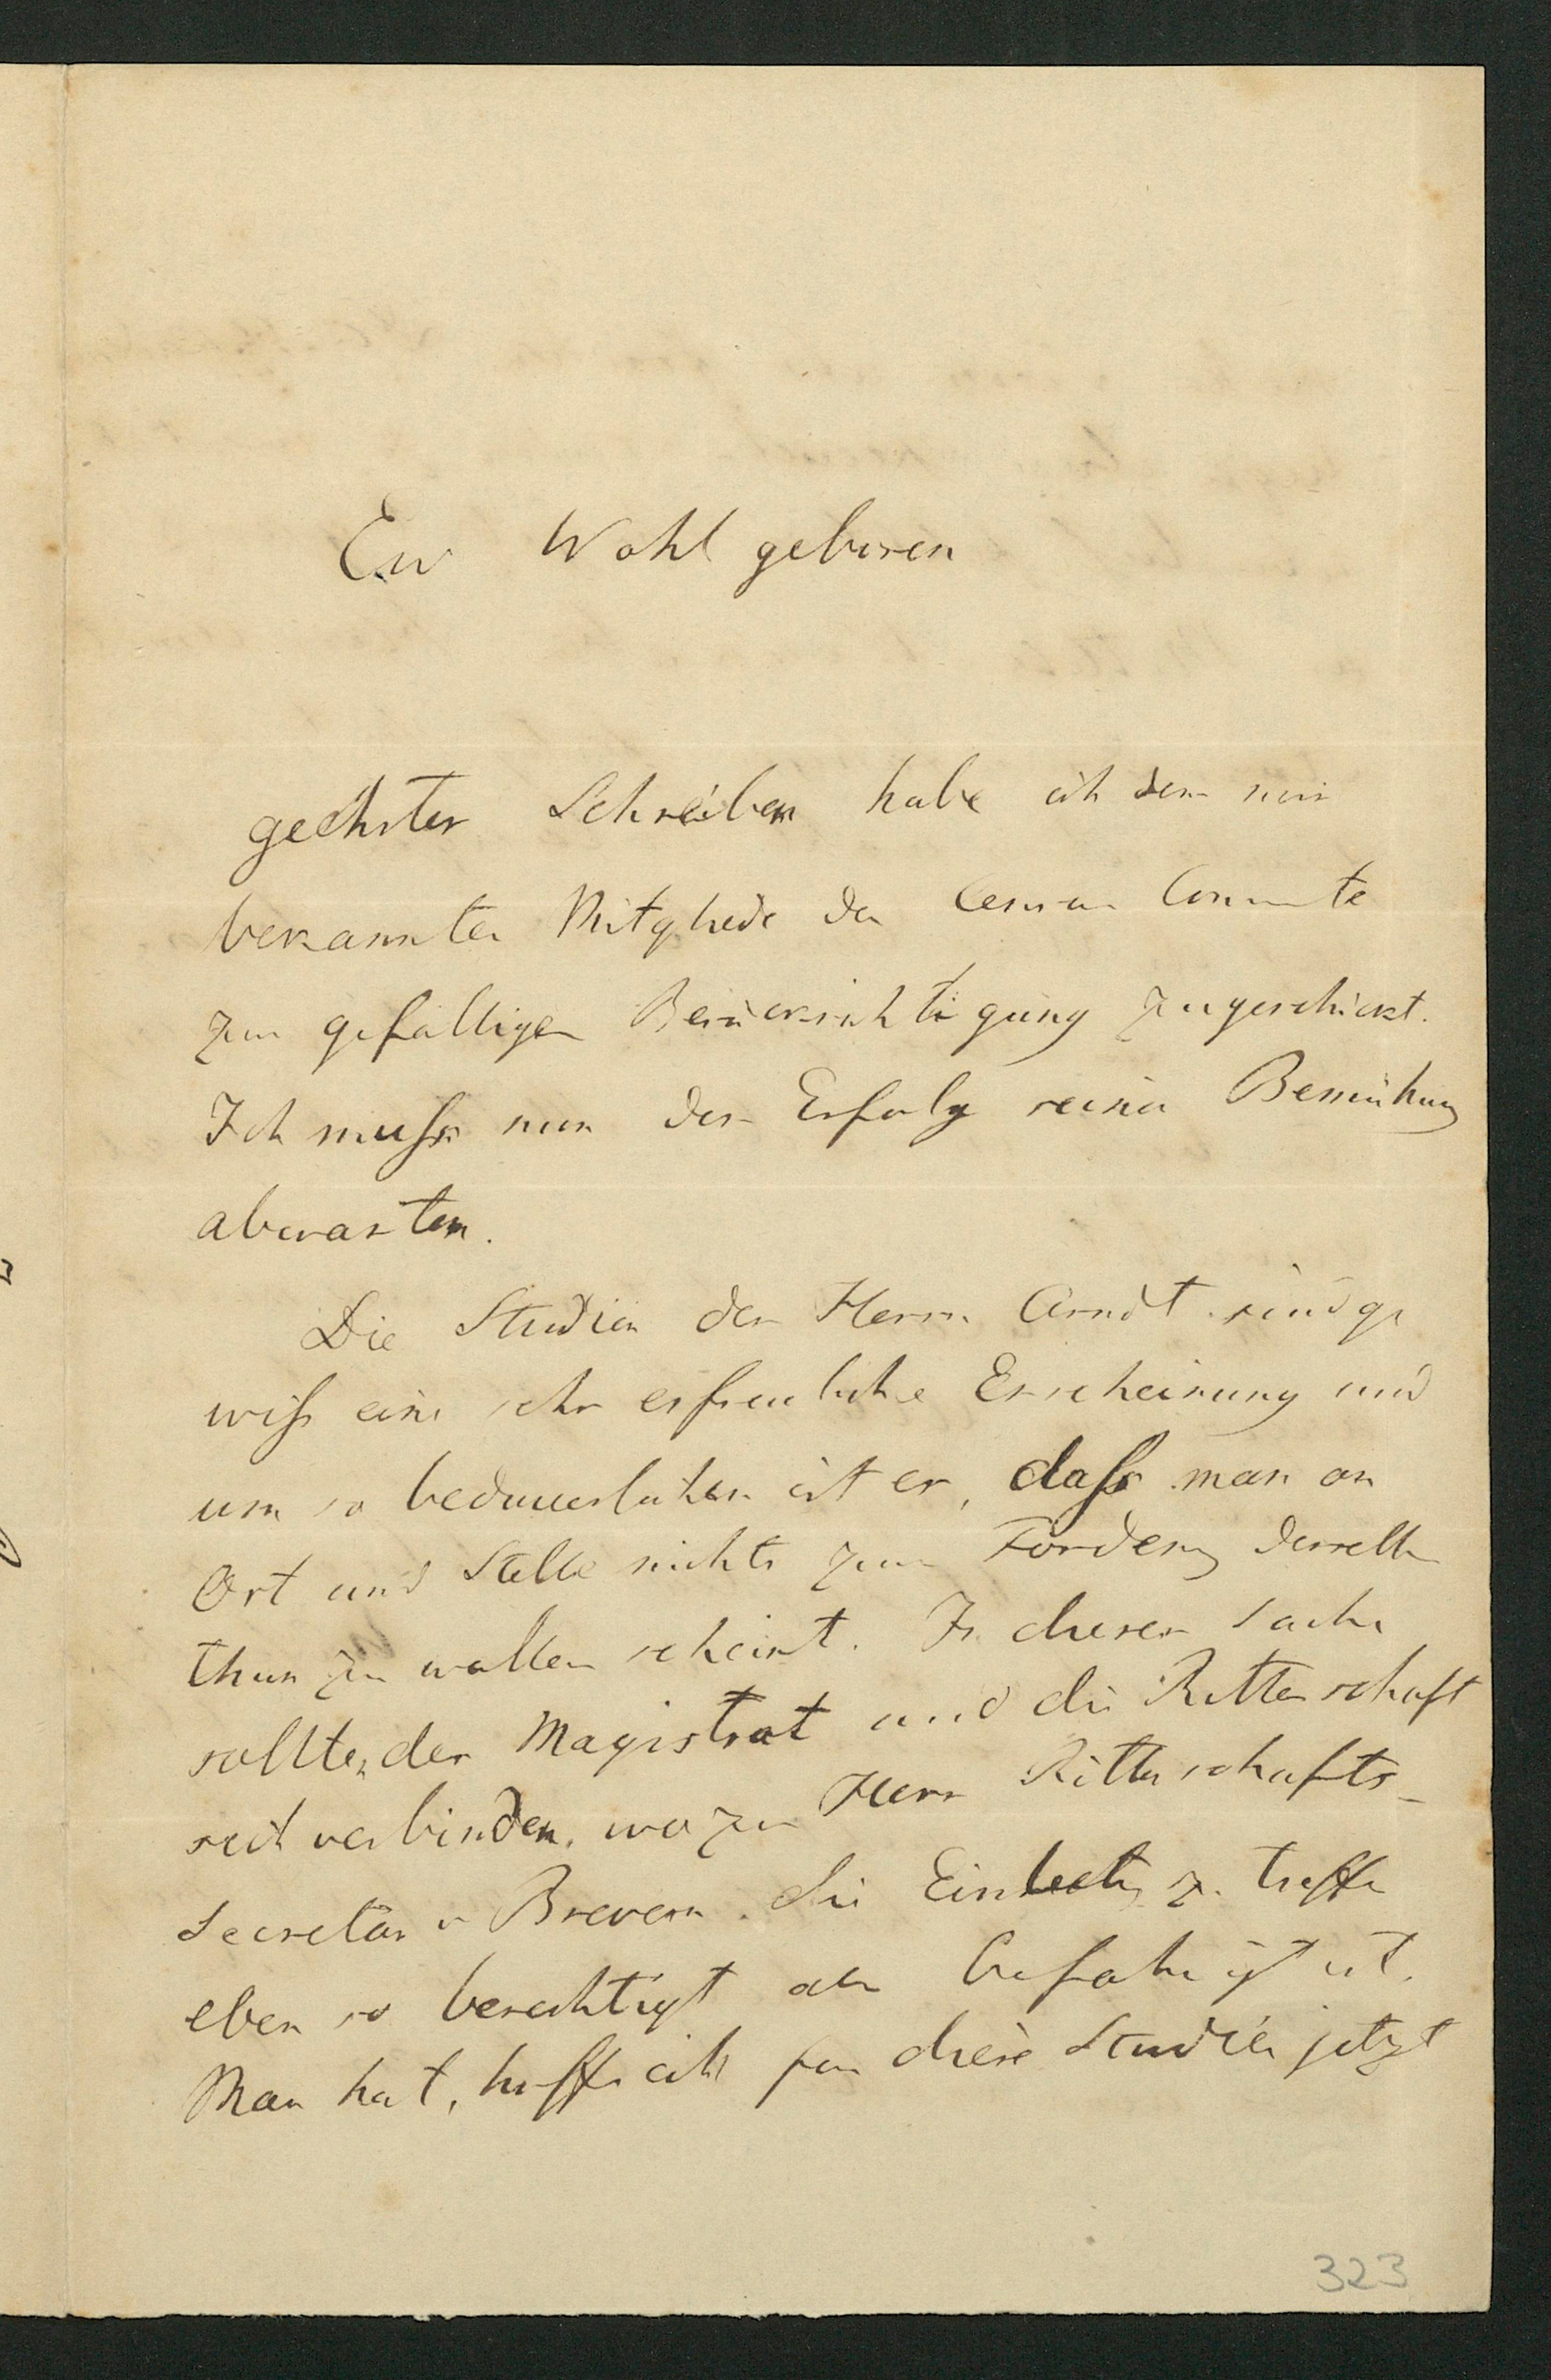 Ew Wohlgeboren
geehrtes Schreiben habe ich dem mir
bekannten Mitgliede des Censur Comite
zur gefälligen Berücksichtigung zugeschickt.
Ich muss nun den Erfolg seiner Bemühung
abwarten.
Die Studien des Herrn Arndt sind ge
wiss eine sehr erfreuliche Erscheinung und
um so bedauerlicher ist es, dass man an
Ort und Stelle nichts zur Förderung derselben
thun zu wollen scheint. In dieser Sache
sollten der Magistrat und die Ritterschaft
sich verbinden, wozu Herr Ritterschafts-
Secretär v Brevern die Einleitg z. treffen
eben so berechtigt als befähigt ist.
Man hat, hoffe ich für diese Studien jetzt
323